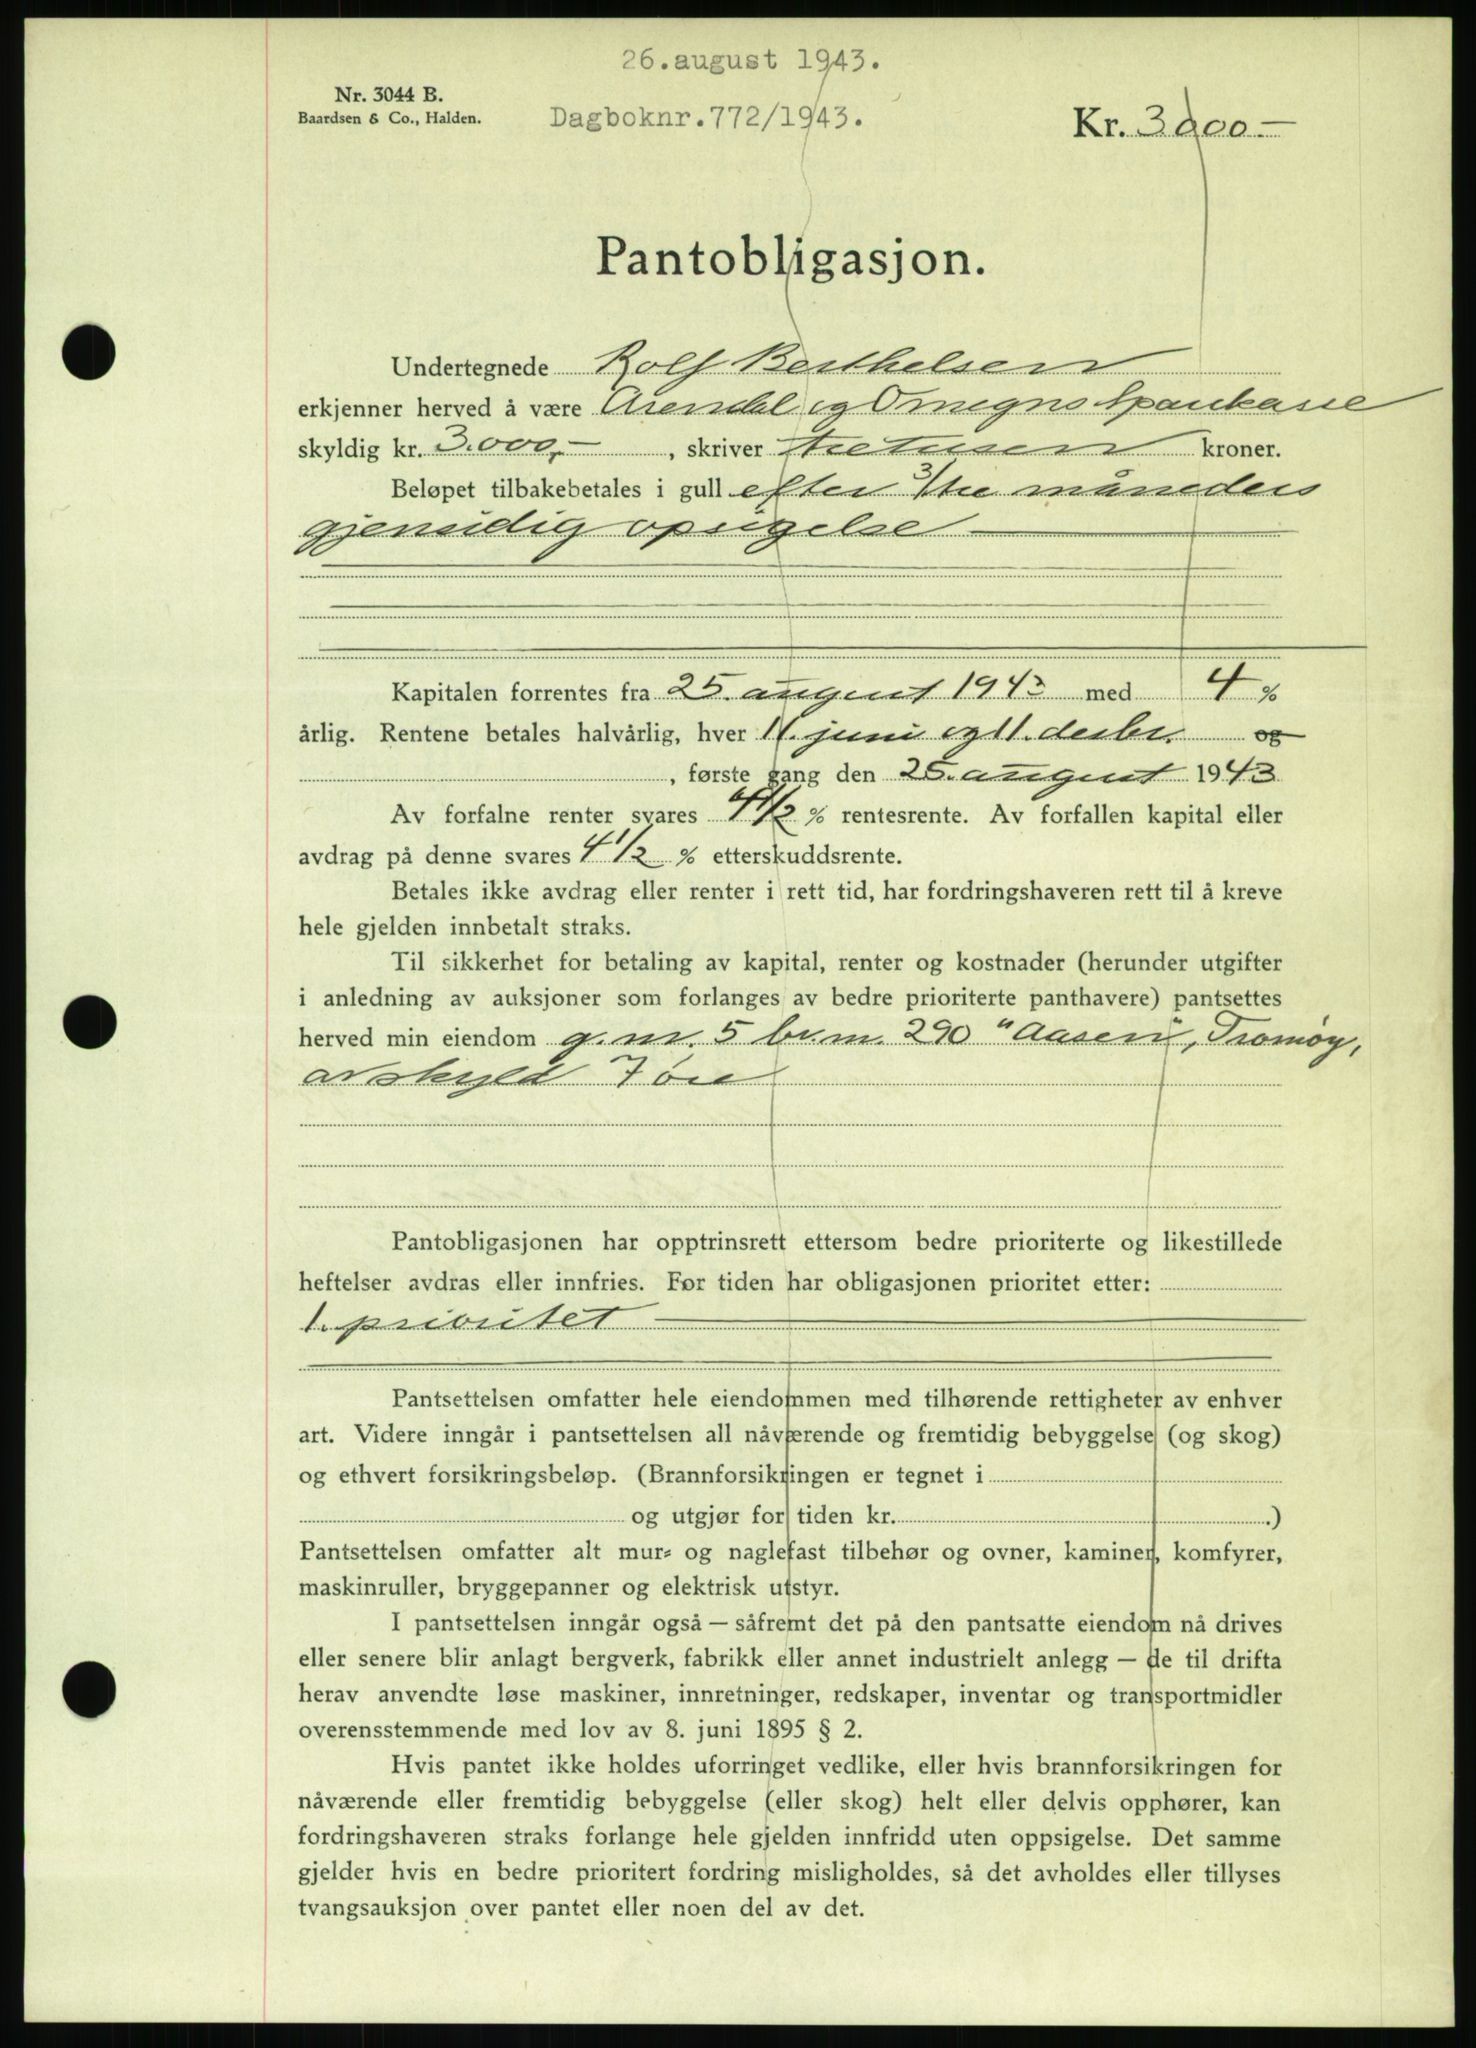 26. august 1943.
Nr. 3044 B.
Baardsen & Co., Halden.
Dagboknr. 772/1943.
Kr. 3000.—
Pantobligasjon.
Undertegnede Rolf Berthelsen
erkjenner herved å være Arendal og Omegns Sparekasse
skyldig kr. 3.000,- , skriver tretusen kroner.
Beløpet tilbakebetales i gull efter 3/tre måneders
gjensidig opsigelse
Kapitalen forrentes fra 25. august 1943 med 4 %
årlig. Rentene betales halvårlig, hver 11. juni og 11. desbr. og
, første gang den 25. august 1943
Av forfalne renter svares 4 1/2 % rentesrente. Av forfallen kapital eller
avdrag på denne svares 4 1/2 % etterskuddsrente.
Betales ikke avdrag eller renter i rett tid, har fordringshaveren rett til å kreve
hele gjelden innbetalt straks.
Til sikkerhet for betaling av kapital, renter og kostnader (herunder utgifter
i anledning av auksjoner som forlanges av bedre prioriterte panthavere) pantsettes
herved min eiendom g.nr. 5 br.nr. 290 "Aasen", Tromøy,
av skyld 7 øre
Pantobligasjonen har opptrinsrett ettersom bedre prioriterte og likestillede
heftelser avdras eller innfries. For tiden har obligasjonen prioritet etter:
1. prioritet
Pantsettelsen omfatter hele eiendommen med tilhørende rettigheter av enhver
art. Videre inngår i pantsettelsen all nåværende og fremtidig bebyggelse (og skog)
og ethvert forsikringsbeløp. (Brannforsikringen er tegnet i
og utgjør for tiden kr. .)
Pantsettelsen omfatter alt mur- og naglefast tilbehør og ovner, kaminer, komfyrer,
maskinruller, bryggepanner og elektrisk utstyr.
I pantsettelsen inngår også — såfremt det på den pantsatte eiendom nå drives
eller senere blir anlagt bergverk, fabrikk eller annet industrielt anlegg — de til drifta
herav anvendte løse maskiner, innretninger, redskaper, inventar og transportmidler
overensstemmende med lov av 8. juni 1895 § 2.
Hvis pantet ikke holdes uforringet vedlike, eller hvis brannforsikringen for
nåværende eller fremtidig bebyggelse (eller skog) helt eller delvis opphører, kan
fordringshaveren straks forlange hele gjelden innfridd uten oppsigelse. Det samme
gjelder hvis en bedre prioritert fordring misligholdes, så det avholdes eller tillyses
tvangsauksjon over pantet eller noen del av det.